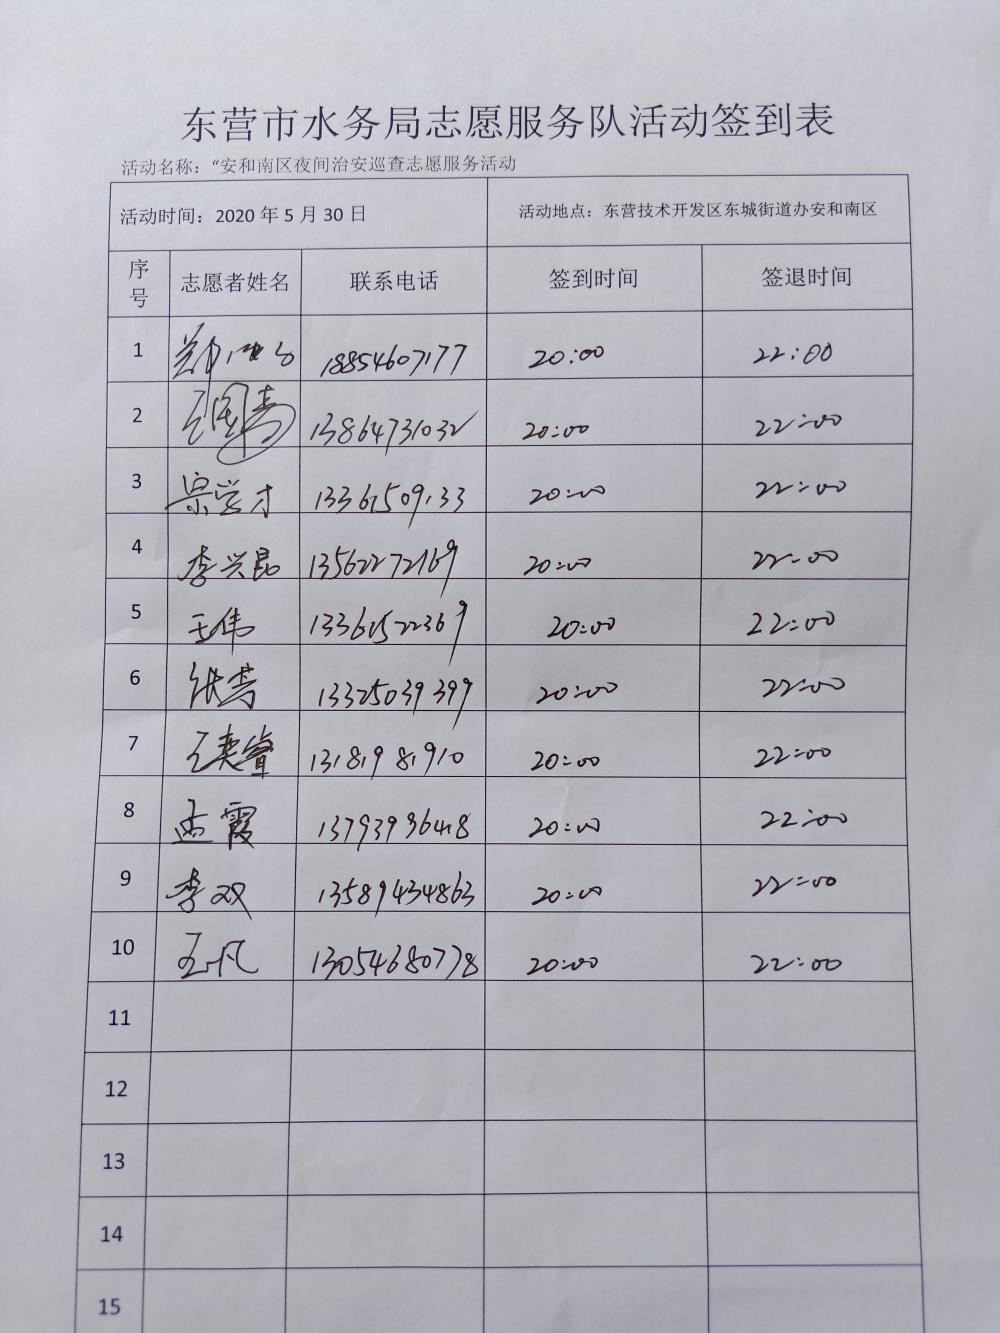 东营市水务局志愿服务队活动签到表
活动名称：“安和南区夜间治安巡查志愿服务活动
活动时间：2020 年 5 月 30 日 活动地点：东营技术开发区东城街道办安和南区
序号 志愿者姓名 联系电话 签到时间 签退时间
1 18854607177 20:00 22:00
2 王国青 13864731032 20:00 22:00
3 宗学才 13361509133 20:00 22:00
4 李兴昆 13562272169 20:00 22:00
5 王伟 13361522369 20:00 22:00
6 张营 13325039399 20:00 22:00
7 王奕睿 13181981910 20:00 22:00
8 孟霞 13793996418 20:00 22:00
9 李双 13589434863 20:00 22:00
10 王凡 13054680778 20:00 22:00
11
12
13
14
15